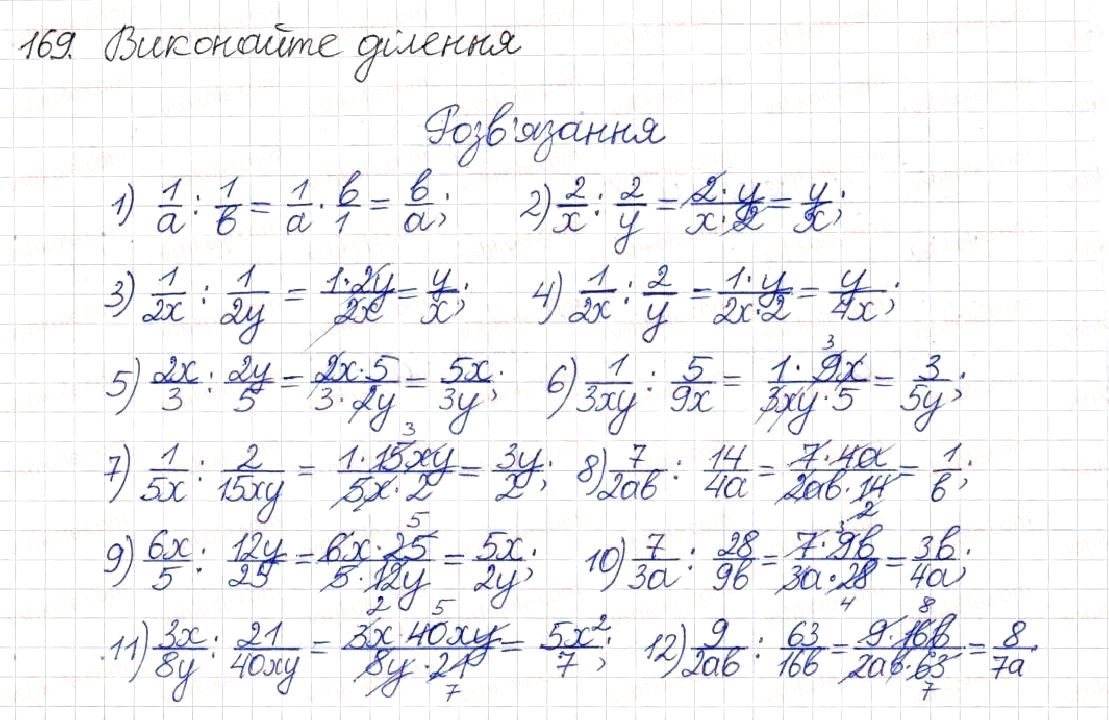 169. Виконайте ділення
Розв'язання
1) 1/a : 1/b = 1/a · b/1 = b/a; 2) 2/x : 2/y = 2·y/x·2 = y/x;
3) 1/2x : 1/2y = 1·2y/2x = y/x; 4) 1/2x : 2/y = 1·y/2x·2 = y/4x;
5) 2x/3 : 2y/5 = 2x·5/3·2y = 5x/3y; 6) 1/3xy : 5/9x = 1·9x/3xy·5 = 3/5y;
7) 1/5x : 2/15xy = 1·15xy/5x·2 = 3y/2; 8) 7/2ab : 14/4a = 7·4a/2ab·14 = 1/b;
9) 6x/5 : 12y/25 = 6x·25/5·12y = 5x/2y; 10) 7/3a : 28/9b = 7·9b/3a·28 = 3b/4a;
11) 3x/8y : 21/40xy = 3x·40xy/8y·21 = 5x²/7; 12) 9/2ab : 63/16b = 9·16b/2ab·63 = 8/7a